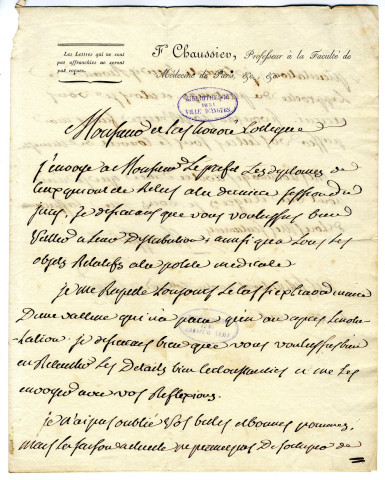 Les Lettres qui ne sont
pas affranchies ne seront
pas reçues.
F. Chaussier, Professeur à la Faculté de
Médecine de Paris, &c. &c.
BIBLIOTHEQUE
DE LA
VILLE D'ANGERS
Monsieur et
j'envoye a Monsieur Le prefet Les diplomes de
ceux qui ont été Relus a la derniere session du
jury, je desirerais que vous voulussiez bien
veiller a leur Distribution ainsi qu'a tous Les
objets Relatifs a la police medicale
je me Rapelle toujours Le cas extraordinaire
D'une vaccine qui n'a paru qu'un an apres L'inocu-
lation. je desirerais bien que vous voulussiez bien
en Recueillir Les Details bien circonstanciés et me Les
envoyer avec vos Reflexions.
je n'ai pas oublié vos belles et bonnes pommes,
Mais La saison actuelle ne permet pas De